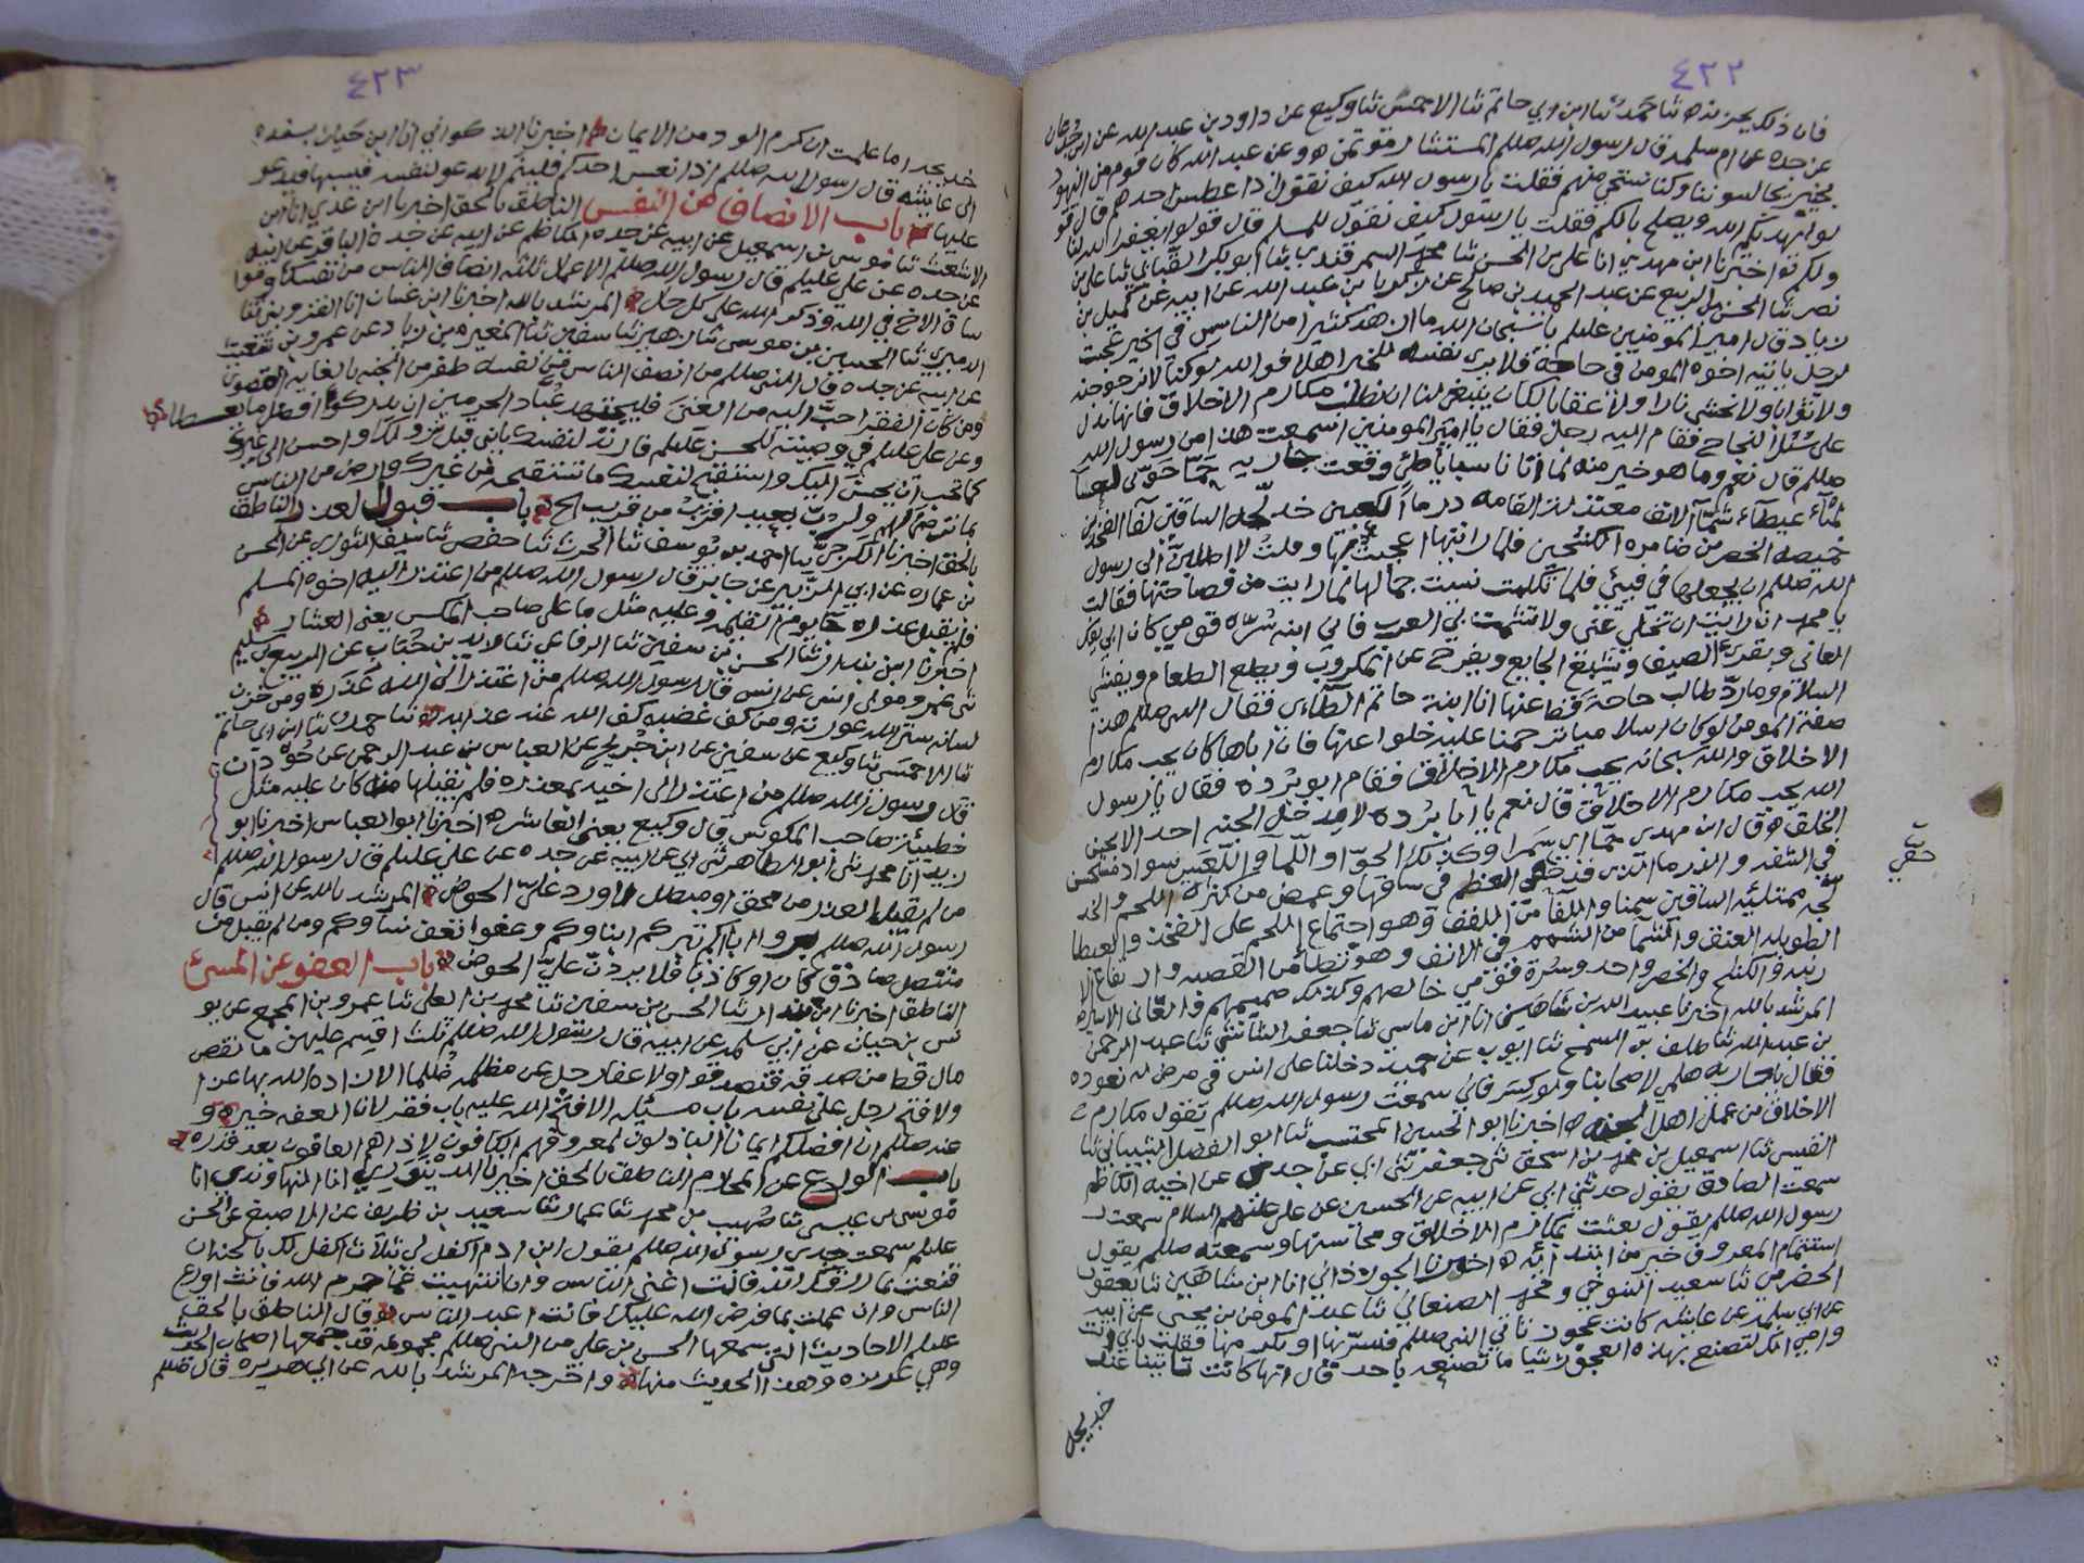 ٤٢٢
فان ذلك يحزنه ثنا حمد ثنا ابن ابي حاتم ثنا الاحمسي ثنا وكيع عن داود بن عبد الله عن ابن جدعان
عن جده عن ام سلمه قال رسول الله صللم المستشار مؤتمن هو وعن عبد الله كان قوم من اليهود
يجالسوننا وكنا نستحي منهم فقلت يا رسول الله كيف نقول اذا عطس احدهم قال قو
لوا يهديكم الله ويصلح بالكم فقلت يا رسول كيف نقول للمسلم قال قولوا يغفر الله لنا
ولكم اخبرنا ابن مهدي انا علي بن الحسن ثنا محمد السمرقندي ثنا ابو بكر ثنا علي بن
نصر ثنا الحسن بن الربيع عن عبد الحميد بن صالح عن زكريا بن عبد الله عن ابيه عن كميل بن
زياد قال امير المومنين عليلم يا سبحان الله ما ازهد كثيرا من الناس في الخير عجبت
لرجل ياتيه اخوه المومن في حاجة فلا يرى نفسه للخير اهلا فو الله لو كنا لا نرجو جنه
ولا ثوابا ولا نخشى نارا ولا عقابا لكان ينبغي لنا ان نطلب مكارم الاخلاق فانها تدل
على سبل النجاح فقام اليه رجل فقال يا امير المومنين اسمعت هذا من رسول الله
صللم قال نعم وما هو خير منه لما اتانا سبايا طي وقعت جاريه حما حوى لعسا
لميا عيطا شما الانف معتدلة القامه درما الكعبين خدلجه الساقين لفا الفخذين
خميصه الخصرين ضامره الكشحين فلما رايتها اعجبت بها وقلت لاطلبن الى رسول
الله صللم ان يجعلها في فيئي فلما تكلمت نسيت جمالها لما رايت من فصاحتها فقالت
يا محمد ان رايت ان تخلي عني ولا تشمت بي العرب فاني ابنه سراة قومي كان ابي يفك
العاني ويقري الضيف ويشبع الجايع ويفرج عن المكروب ويطعم الطعام ويفشي
السلام وما رد طالب حاجة قط عنها انا ابنة حاتم الطاى فقال النبي صللم هذا
صفة المومن لو كان اسلاميا لترحمنا عليه خلوا عنها فان اباها كان يحب مكارم
الاخلاق والله سبحانه يحب مكارم الاخلاق فقام ابو برده فقال يا رسول
الله يحب مكارم الاخلاق قال نعم يا ابا برده لا يدخل الجنه احد الا بحسن
الخلق قال ابن مهدي حما اي سمرا وكذلك الحوا واللميا واللعس سواد مستحسن
في الشفه والدرما التي قد خفي العظم في ساقها وغمض من كثرة اللحم والخد
لجه ممتليه الساقين سمنا واللفا من اللفف وهو اجتماع اللحم على الفخذ والعيطا
الطويله العنق والشما من الشمم في الانف وهو تطامن القصبه وارتفاع الا
رنبه والكشح والخصر واحد وسراة قومي خالصهم وكذلك صميمهم والعاني الاسير
المرشد بالله اخبرنا عبيد الله بن شاهين انا ابن ماسي ثنا جعفر ثنا عبد الرحمن
بن عبد الله ثنا طلق بن السمح ثنا ايوب عن حميد دخلنا على انس في مرض له نعوده
فقال يا جاريه هلمي لاصحابنا ولو كسر فاني سمعت رسول الله صللم يقول مكارم
الاخلاق من عمل اهل الجنه اخبرنا ابو الحسين المحتسب ثنا ابو الفضل الشيباني ثنا
ثنا اسمعيل بن محمد بن اسحق ثني جعفر ثني ابي عن جده عن اخيه الكاظم
سمعت الصادق يقول حدثني ابي عن ابيه عن الحسين عن علي عليهم السلام سمعت
رسول الله صللم يقول بعثت بمكارم الاخلاق ومحاسنها وسمعته صللم يقول
استتمام المعروف خير من ابتدائه اخبرنا الجوزذاني انا ابن شاهين ثنا يعقوب
الحضرمي ثنا سعيد التنوخي ومحمد الصنعاني ثنا عبد المومن بن يحيى عن ابيه
عن ابي سلمه عن عايشه كانت عجوز تاتي النبي صللم فيسر بها ويكرمها فقلت بابي انت
وامي انك لتصنع بهذه العجوز شيا ما تصنعه باحد قال انها كانت تاتينا عند
خديجه
٤٢٣
خديجه اما علمت ان كرم الود من الايمان اخبرنا الذكواني انا ابن حيان بسنده
الى عايشه قال رسول الله صللم اذا نعس احدكم فلينم لانه يدعو لنفسه فيسبها فيدعو
عليها باب الانصاف من النفس الناطق بالحق اخبرنا ابن عدي انا ابن
الاشعث ثنا موسى بن اسمعيل عن ابيه عن جده الكاظم عن ابيه عن جده الباقر عن ابيه
عن جده عن علي عليلم قال رسول الله صللم الاعمال ثلثه انصاف الناس من نفسك وموا
ساة الاخ في الله وذكر الله على كل حال المرشد بالله اخبرنا ابن غسان انا
ثنا الحسين بن موسى ثنا زهير ثنا سفين ثنا المغيره بن زياد عن عمرو بن شعيب
عن ابيه عن جده قال النبي صللم من انصف الناس من نفسه ظفر من الجنه بالغايه القصوى
ومن كان الفقر احب اليه من الغنى فليجتهد عباد الحرمين ان يدركوا افضل ما يعطا
وعن علي عليلم في وصيته للحسن عليلم فارتد لنفسك يا بني قبل نزولك واحسن الى غيرك
كما تحب ان يحسن اليك واستقبح لنفسك ما تستقبحه من غيرك وارض من الناس
بما ترضى لهم ولرب بعيد اقرب من قريب الخ باب قبول العذر الناطق
بالحق اخبرنا الكرجي ثنا احمد بن يوسف ثنا الحرث ثنا حفص ثنا سيف الثوري عن الحسن
بن عماره عن ابي الزبير عن جابر قال رسول الله صللم من اعتذر اليه اخوه المسلم
فلم يقبل عذره جا يوم القيمه وعليه مثل ما على صاحب المكس يعني العشار
اخبرنا ابن بندار ثنا الحسن بن سفين ثنا الرفاعي ثنا زيد بن حباب عن الربيع بن سليم
ثني عمرو مولى انس عن انس قال رسول الله صللم من اعتذر الى الله عذره ومن خزن
لسانه ستر الله عورته ومن كف غضبه كف الله عنه عذابه ثنا حمد ثنا ابن ابي حاتم
ثنا الاحمسي ثنا وكيع عن سفين عن ابن جريج عن العباس بن عبد الرحمن عن جودان
قال رسول الله صللم من اعتذر الى اخيه بمعذره فلم يقبلها منه كان عليه مثل
خطيئة صاحب المكوس قال وكيع يعني العاشر اخبرنا ابو العباس اخبرنا ابو
زيد انا محمد ثني ابو الطاهر ثني ابي عن ابيه عن جده عن علي عليلم قال رسول الله صللم
من لم يقبل العذر من محق او مبطل لا ورد علي الحوض المرشد بالله عن انس قال
رسول الله صللم بروا اباكم تبركم ابناوكم وعفوا تعف نساوكم ومن لم يقبل من
متنصل صادقا كان او كاذبا فلا يردن علي الحوض باب العفو عن المسئ
الناطق اخبرنا ابن بندار ثنا الحسن بن سفين ثنا محمد بن العلى ثنا عمرو بن المجمع عن يو
نس بن حيان عن ابي سلمه عن ابيه قال رسول الله صللم ثلث اقسم عليهن ما نقص
مال قط من صدقه فتصدقوا ولا عفا رجل عن مظلمه ظلمها الا زاده الله بها عزا
ولا فتح رجل على نفسه باب مسئله الا فتح الله عليه باب فقر لان العفه خير و
عنه صللم ان افضلكم ايمانا الباذلون لمعروفهم الكافون لاذاهم العافون بعد قدره
باب الورع عن المحارم الناطق بالحق اخبرنا الدينوري انا النهاوندي انا
موسى بن عيسى ثنا صهيب بن محمد ثنا عمار ثنا سعيد بن ظريف عن الاصبغ عن الحسن
عليلم سمعت جدي رسول الله صللم يقول ابن ادم اكفل لي ثلاث اكفل لك بالجنه ان
قنعت بما رزقك الله فانت اغنى الناس وان انتهيت عما حرم الله فانت اورع
الناس وان عملت بما فرض الله عليك فانت اعبد الناس قال الناطق بالحق
عليلم الاحاديث التي سمعها الحسن بن علي من النبي صللم مجموعه قد جمعها اصحاب الحديث
وهي عزيزه وهذا الحديث منها واخرجه المرشد بالله عن ابي هريره قال صللم